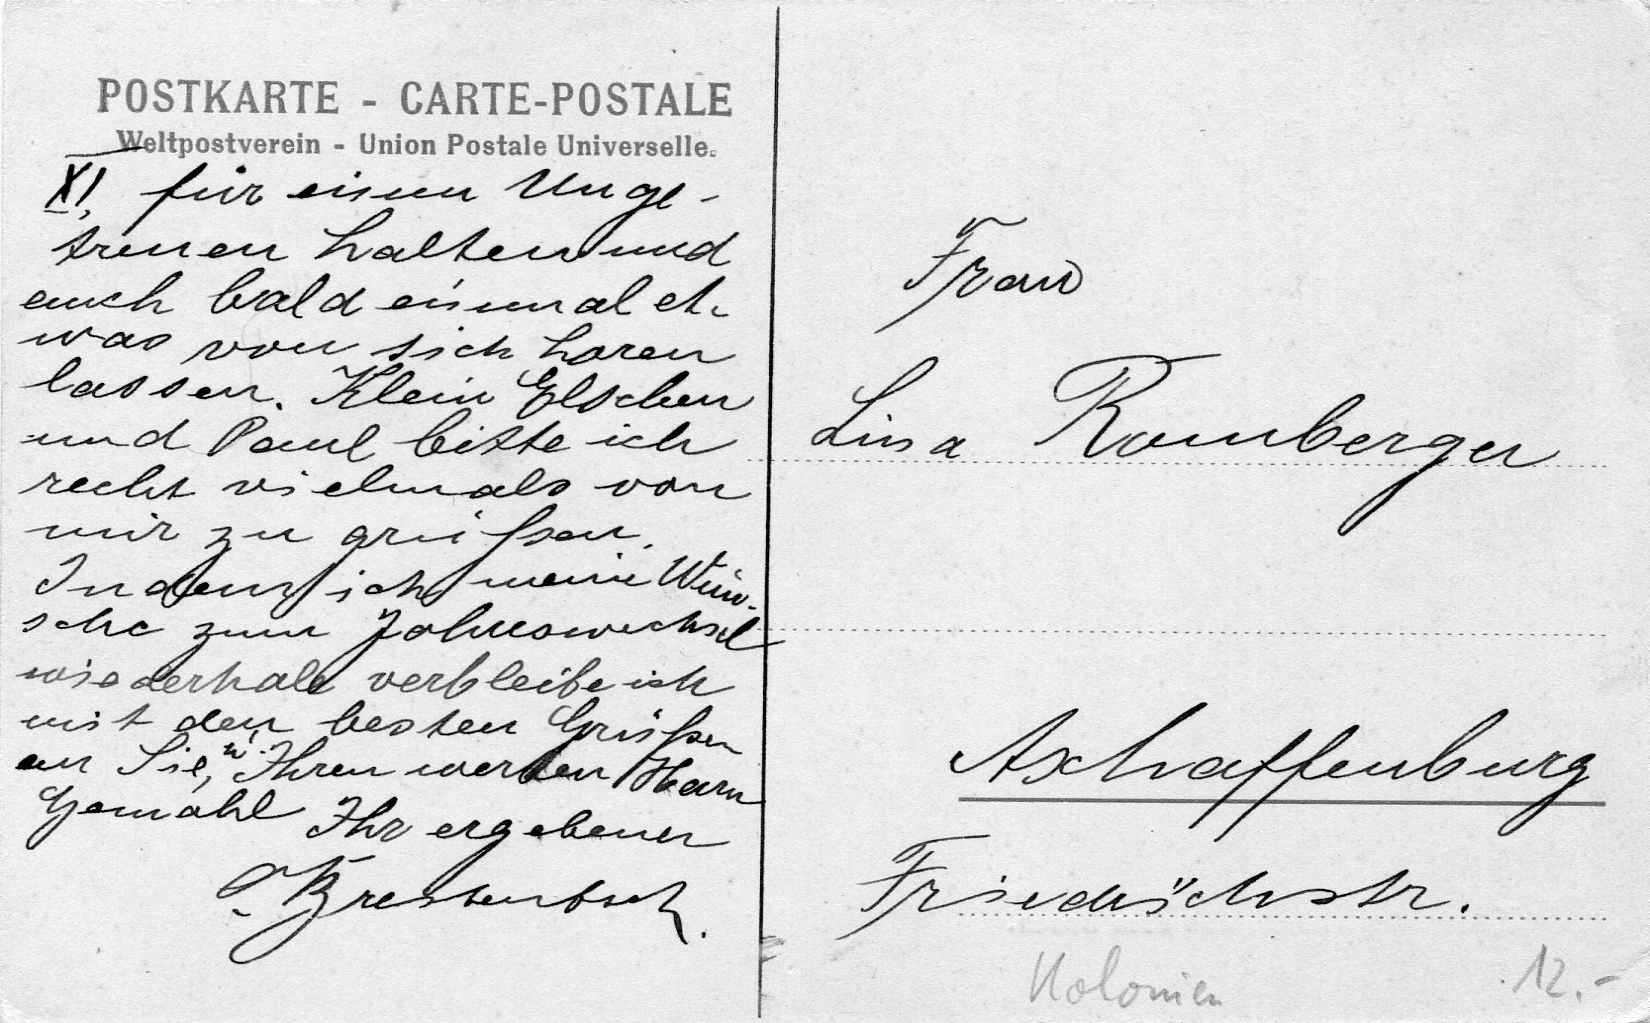 POSTKARTE - CARTE-POSTALE
Weltpostverein - Union Postale Universelle.
XI. für einen Unge-
treuen halten und
auch bald einmal et-
was von sich hören
lassen. Klein Elschen
und Paul bitte ich
recht vielmals von
mir zu grüßen.
Indem ich meine Wün-
sche zum Jahreswechsel
wiederhole verbleibe ich
mit den besten Grüßen
an Sie, u. Ihren werten Herrn
Gemahl Ihr ergebener
Frau
Lina Romberger
Aschaffenburg
Friedrichstr.
Kolonien 12.-